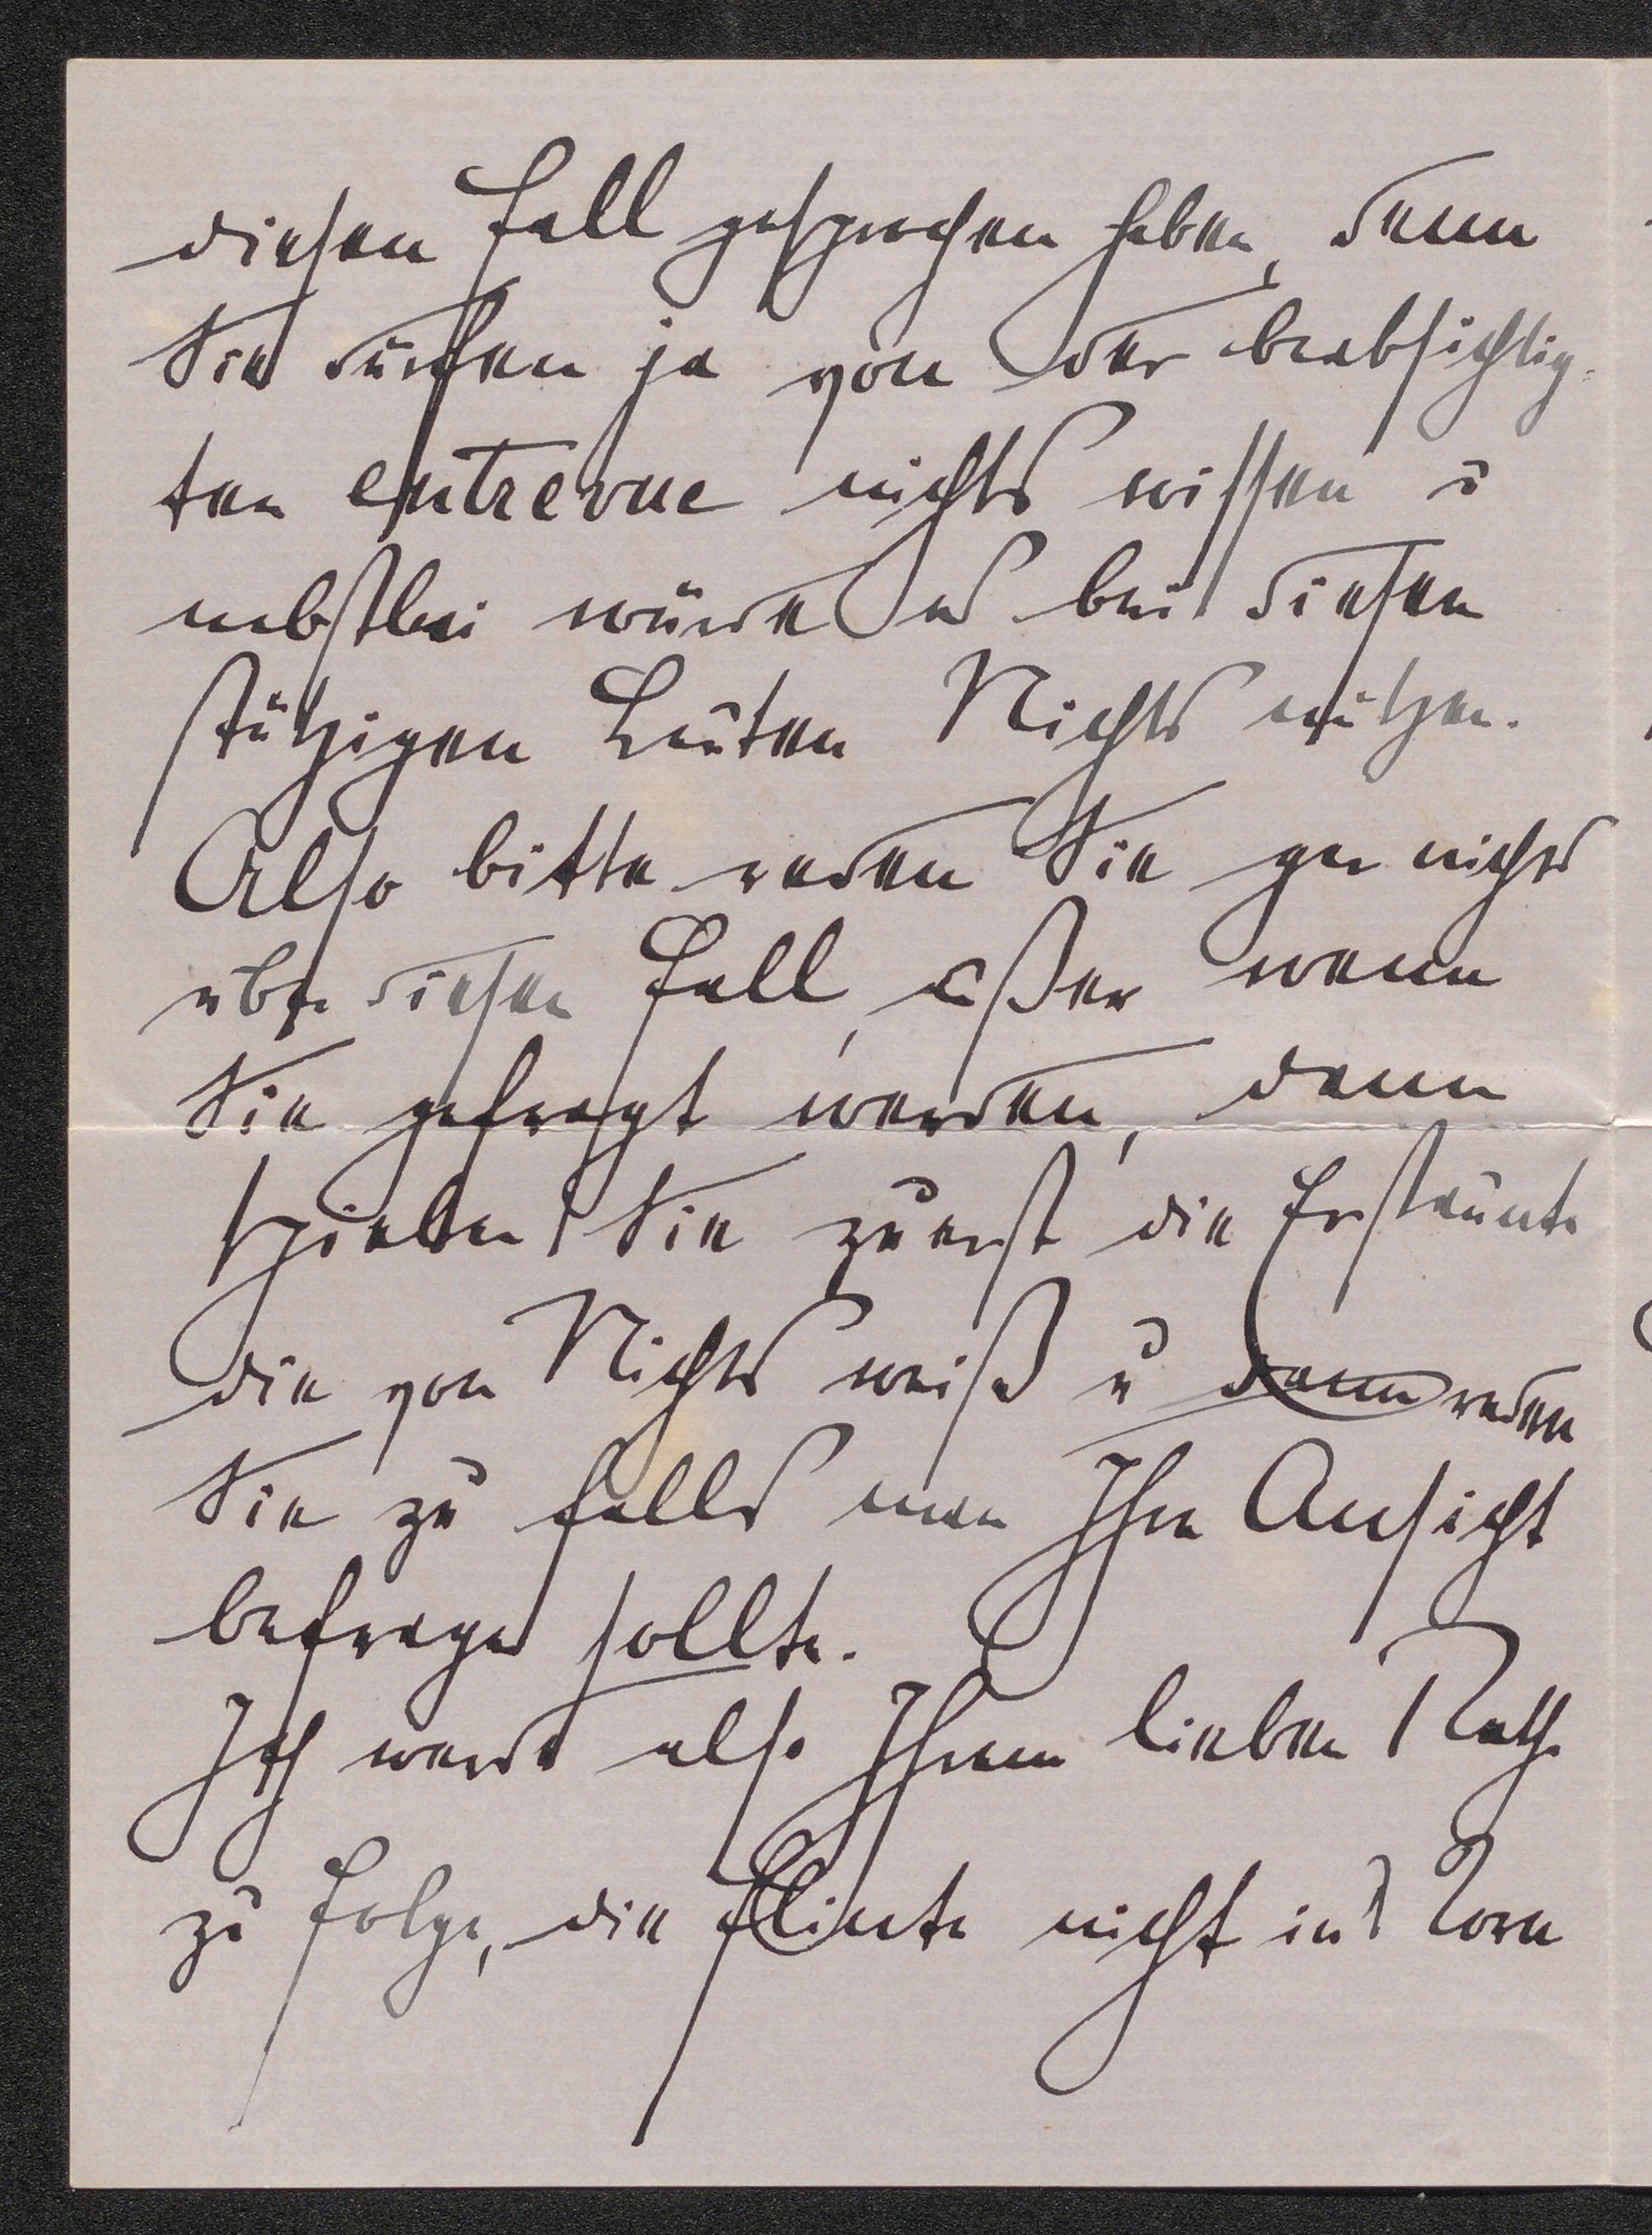 diesen Fall gesprochen haben, denn
Sie dürfen ja von der beabsichtig-
ten entrevue nichts wissen u
nebstbei würde es bei diesen
stützigen Leuten Nichts nützen.
Also bitte reden Sie gar nichts
über diesen Fall, außer wenn
Sie gefragt werden, dann
spielen Sie zuerst die Erstaunte
die von Nichts weiß u dann reden
Sie zu falls man Ihre Ansicht
befragen sollte.
Ich werde also Ihrem lieben Rathe
zu folge, die Flinte nicht in's Korn